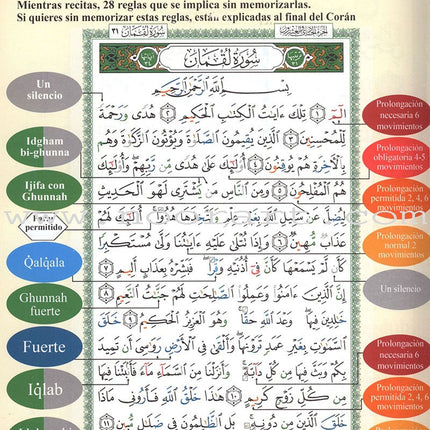 Mientras recitas, 28 reglas que se implica sin memorizarlas.
Si quieres sin memorizar estas reglas, están explicadas al final del Corán
سورة لقمان ٣١
سُورَةُ لُقْمَان
بِسْمِ اللَّهِ الرَّحْمَٰنِ الرَّحِيمِ
الٓمٓ ١ تِلْكَ ءَايَٰتُ ٱلْكِتَٰبِ ٱلْحَكِيمِ ٢ هُدًى وَرَحْمَةً
لِّلْمُحْسِنِينَ ٣ ٱلَّذِينَ يُقِيمُونَ ٱلصَّلَوٰةَ وَيُؤْتُونَ ٱلزَّكَوٰةَ وَهُم
بِٱلْءَاخِرَةِ هُمْ يُوقِنُونَ ٤ أُو۟لَٰٓئِكَ عَلَىٰ هُدًى مِّن رَّبِّهِمْ وَأُو۟لَٰٓئِكَ
هُمُ ٱلْمُفْلِحُونَ ٥ وَمِنَ ٱلنَّاسِ مَن يَشْتَرِى لَهْوَ ٱلْحَدِيثِ
لِيُضِلَّ عَن سَبِيلِ ٱللَّهِ بِغَيْرِ عِلْمٍ وَيَتَّخِذَهَا هُزُوًا أُو۟لَٰٓئِكَ لَهُمْ
عَذَابٌ مُّهِينٌ ٦ وَإِذَا تُتْلَىٰ عَلَيْهِ ءَايَٰتُنَا وَلَّىٰ مُسْتَكْبِرًا
كَأَن لَّمْ يَسْمَعْهَا كَأَنَّ فِىٓ أُذُنَيْهِ وَقْرًا فَبَشِّرْهُ بِعَذَابٍ أَلِيمٍ ٧
إِنَّ ٱلَّذِينَ ءَامَنُوا۟ وَعَمِلُوا۟ ٱلصَّٰلِحَٰتِ لَهُمْ جَنَّٰتُ ٱلنَّعِيمِ ٨
خَٰلِدِينَ فِيهَا وَعْدَ ٱللَّهِ حَقًّا وَهُوَ ٱلْعَزِيزُ ٱلْحَكِيمُ ٩ خَلَقَ
ٱلسَّمَٰوَٰتِ بِغَيْرِ عَمَدٍ تَرَوْنَهَا وَأَلْقَىٰ فِى ٱلْأَرْضِ رَوَٰسِىَ أَن تَمِيدَ
بِكُمْ وَبَثَّ فِيهَا مِن كُلِّ دَآبَّةٍ وَأَنزَلْنَا مِنَ ٱلسَّمَآءِ مَآءً فَأَنۢبَتْنَا فِيهَا
مِن كُلِّ زَوْجٍ كَرِيمٍ ١٠ هَٰذَا خَلْقُ ٱللَّهِ فَأَرُونِى مَاذَا
خَلَقَ ٱلَّذِينَ مِن دُونِهِۦ بَلِ ٱلظَّٰلِمُونَ فِى ضَلَٰلٍ مُّبِينٍ ١١
Un
silencio
Idgham
bi-ghunna
Ijifa con
Ghunnah
permitido
Qalqala
Ghunnah
fuerte
Fuerte
Iqlab
Prolongación
necesaria 6
movimientos
Prolongación
obligatoria 4-5
movimientos
Prolongación
permitida 2, 4, 6
movimientos
Prolongación
normal 2
movimientos
Un silencio
Prolongación
necesaria 6
movimientos
Prolongación
permitida 2, 4, 6
movimientos